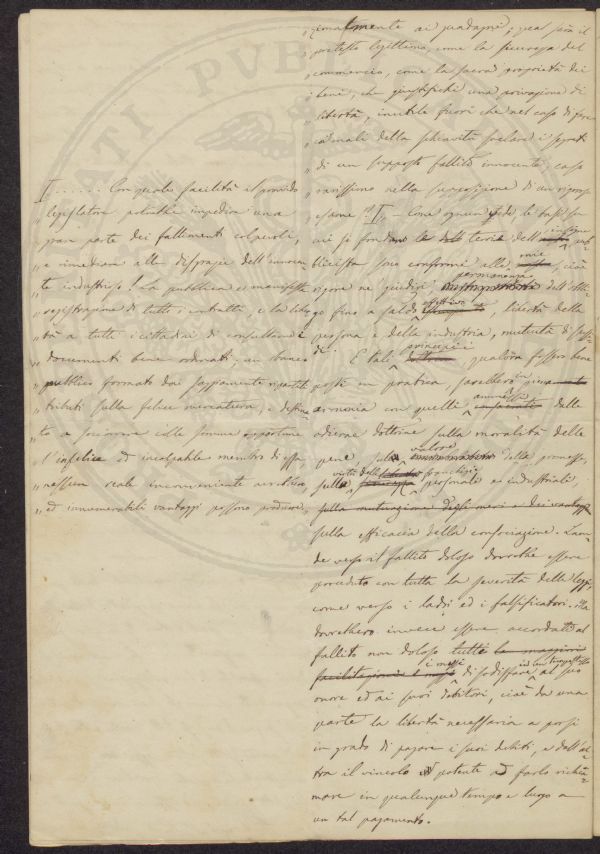 I...... Con quale facilità il provvido
„ legislatore potrebbe impedire una
„ gran parte dei fallimenti colpevoli,
„ e rimediare alle disgrazie dell'innocen-
„ te industrioso! La pubblica e manifesta
„ registrazione di tutti i contratti, e la liber-
„ tà a tutt'i cittadini di consultarne i
„ documenti bene ordinati, un banco
„ pubblico formato dai saggiamente ripartiti
„ tributi sulla felice mercatura, e destina-
„ to a soccorrere colle somme opportune
„ l'infelice ed incolpabile membro di essa
„ nessun reale inconveniente avrebbero
„ ed innumerabili vantaggi possono produrre.
ai guadagni; qua sarà il
„ pretesto legittimo, come la sicurezza del
„ commercio, come la sacra proprietà dei
„ beni, che giustifichi una privazione di
„ libertà, inutile fuori che nel caso di far
„ coi mali della schiavitù svelare i segreti
„ di un supposto fallito innocente, caso
„ rarissimo nella supposizione di un rigoroso
„ esame I„ — Come ognun vede, le basi su
cui si fondano le teorie dell'insigne pub-
blicista sono conformi alle mie, cioè
rigore ne' giudizi, permanenza dell'obbli-
go fino a saldo effettivo, libertà della
persona e della industria, mutuità di sussi-
di. E tali principii, qualora fossero bene
posti in pratica, sarebbero in piena
armonia con quelli ammessi dalle
odierne dottrine sulla moralità delle
pene, sul valore delle promesse,
sulla virtù delle franchigie personali e industriali,
sulla mutuazione degli oneri e dei vantaggi
sulla efficacia della consociazione. Laon-
de verso il fallito doloso dovrebbe essere
proceduto con tutta la severità delle leggi,
come verso i ladri ed i falsificatori. Ma
dovrebbero invece essere accordati al
fallito non doloso tutte le maggiori
facilitazioni i mezzi di sodisfare al suo
onore ed ai suoi debitori, cioè da una
parte la libertà necessaria a porsi
in grado di pagare i suoi debiti, e dall'al-
tra il vincolo potente ad farlo richia-
mare in qualunque tempo e luogo a
un tal pagamento.